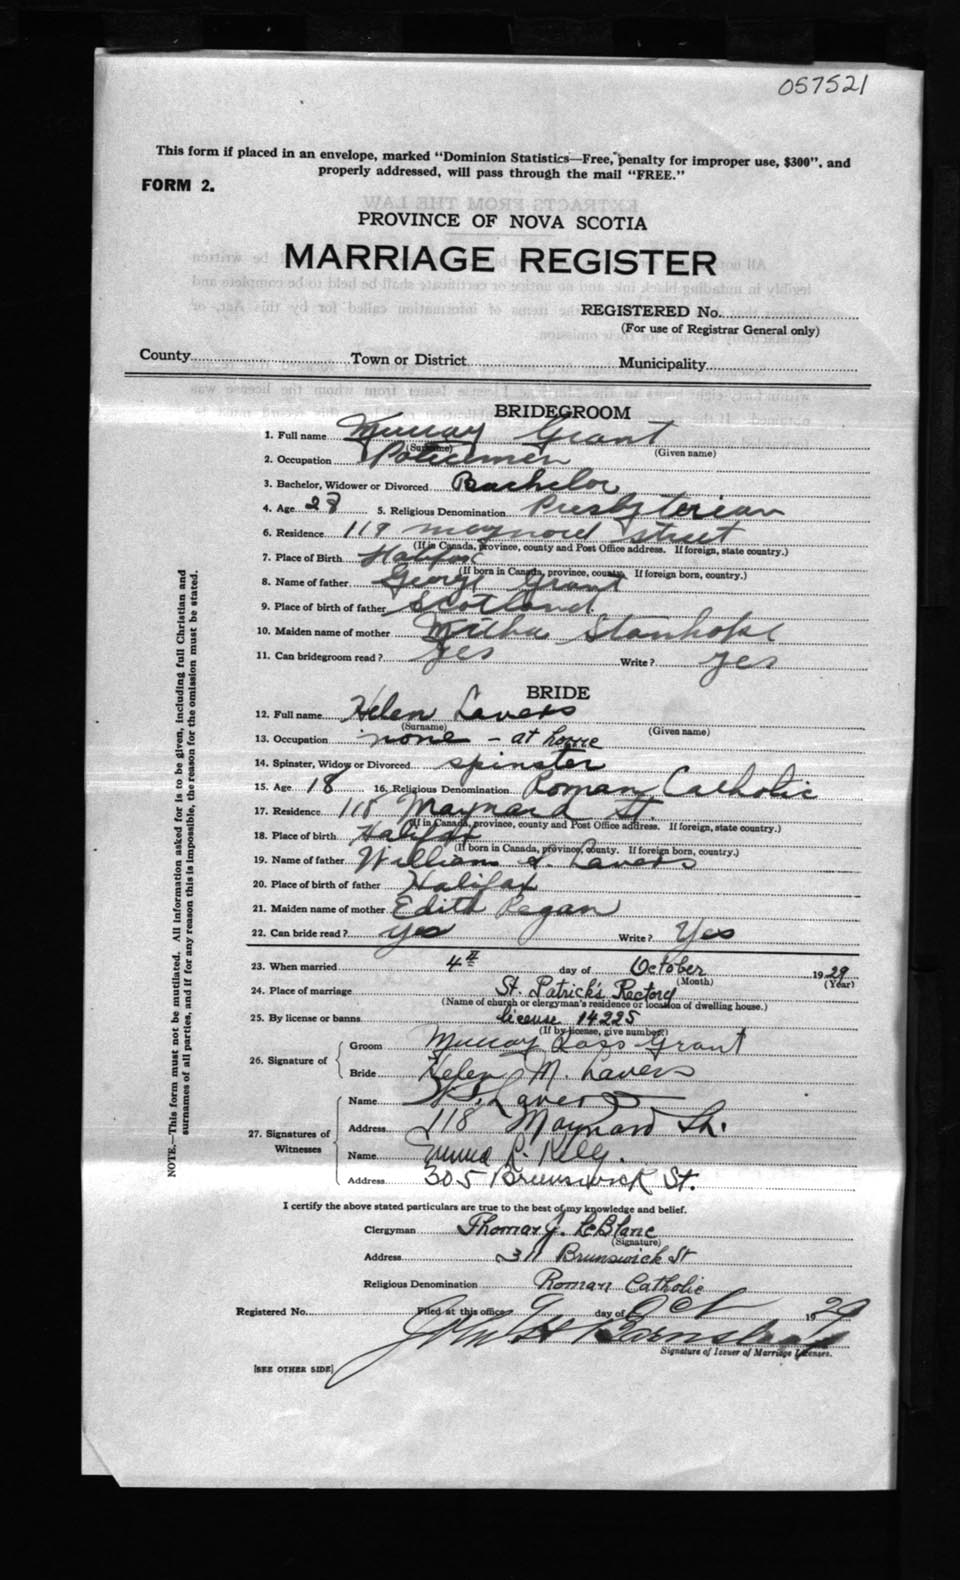 057521
This form if placed in an envelope, marked "Dominion Statistics—Free, penalty for improper use, $300", and
properly addressed, will pass through the mail "FREE."
FORM 2.
PROVINCE OF NOVA SCOTIA
MARRIAGE REGISTER
REGISTERED No.
(For use of Registrar General only)
County Town or District Municipality
BRIDEGROOM
1. Full name Murray Grant
(Surname) (Given name)
2. Occupation Policemen
3. Bachelor, Widower or Divorced Bachelor
4. Age 28 5. Religious Denomination Presbyterian
6. Residence 119 Maynord street
(If in Canada, province, county and Post Office address. If foreign, state country.)
7. Place of Birth Halifax
(If born in Canada, province, county. If foreign born, country.)
8. Name of father George Grant
9. Place of birth of father Scotland
10. Maiden name of mother Stanhope
11. Can bridegroom read? yes Write? yes
BRIDE
12. Full name Helen Lavers
(Surname) (Given name)
13. Occupation none - at home
14. Spinster, Widow or Divorced spinster
15. Age 18 16. Religious Denomination Roman Catholic
17. Residence 118 Maynard St.
(If in Canada, province, county and Post Office address. If foreign, state country.)
18. Place of birth Halifax
(If born in Canada, province, county. If foreign born, country.)
19. Name of father William Lavers
20. Place of birth of father Halifax
21. Maiden name of mother Edith Pegan
22. Can bride read? yes Write? Yes
23. When married 4th day of October 1929
(Month) (Year)
24. Place of marriage St. Patrick's Rectory
(Name of church or clergyman's residence or location of dwelling house.)
25. By license or banns license 14225
(If by license, give number)
26. Signature of Groom Murray Ross Grant
Bride Helen M. Lavers
27. Signatures of Witnesses Name Lavers
Address 118 Maynard St.
Name Emma R. Kelly.
Address 305 Brunswick St.
I certify the above stated particulars are true to the best of my knowledge and belief.
Clergyman Thomas J. LeBlanc
(Signature)
Address 311 Brunswick St
Religious Denomination Roman Catholic
Registered No. Filed at this office day of Oct 1929
Signature of Issuer of Marriage Licenses.
[SEE OTHER SIDE]
NOTE.—This form must not be mutilated. All information asked for is to be given, including full Christian and
surnames of all parties, and if for any reason this is impossible, the reason for the omission must be stated.